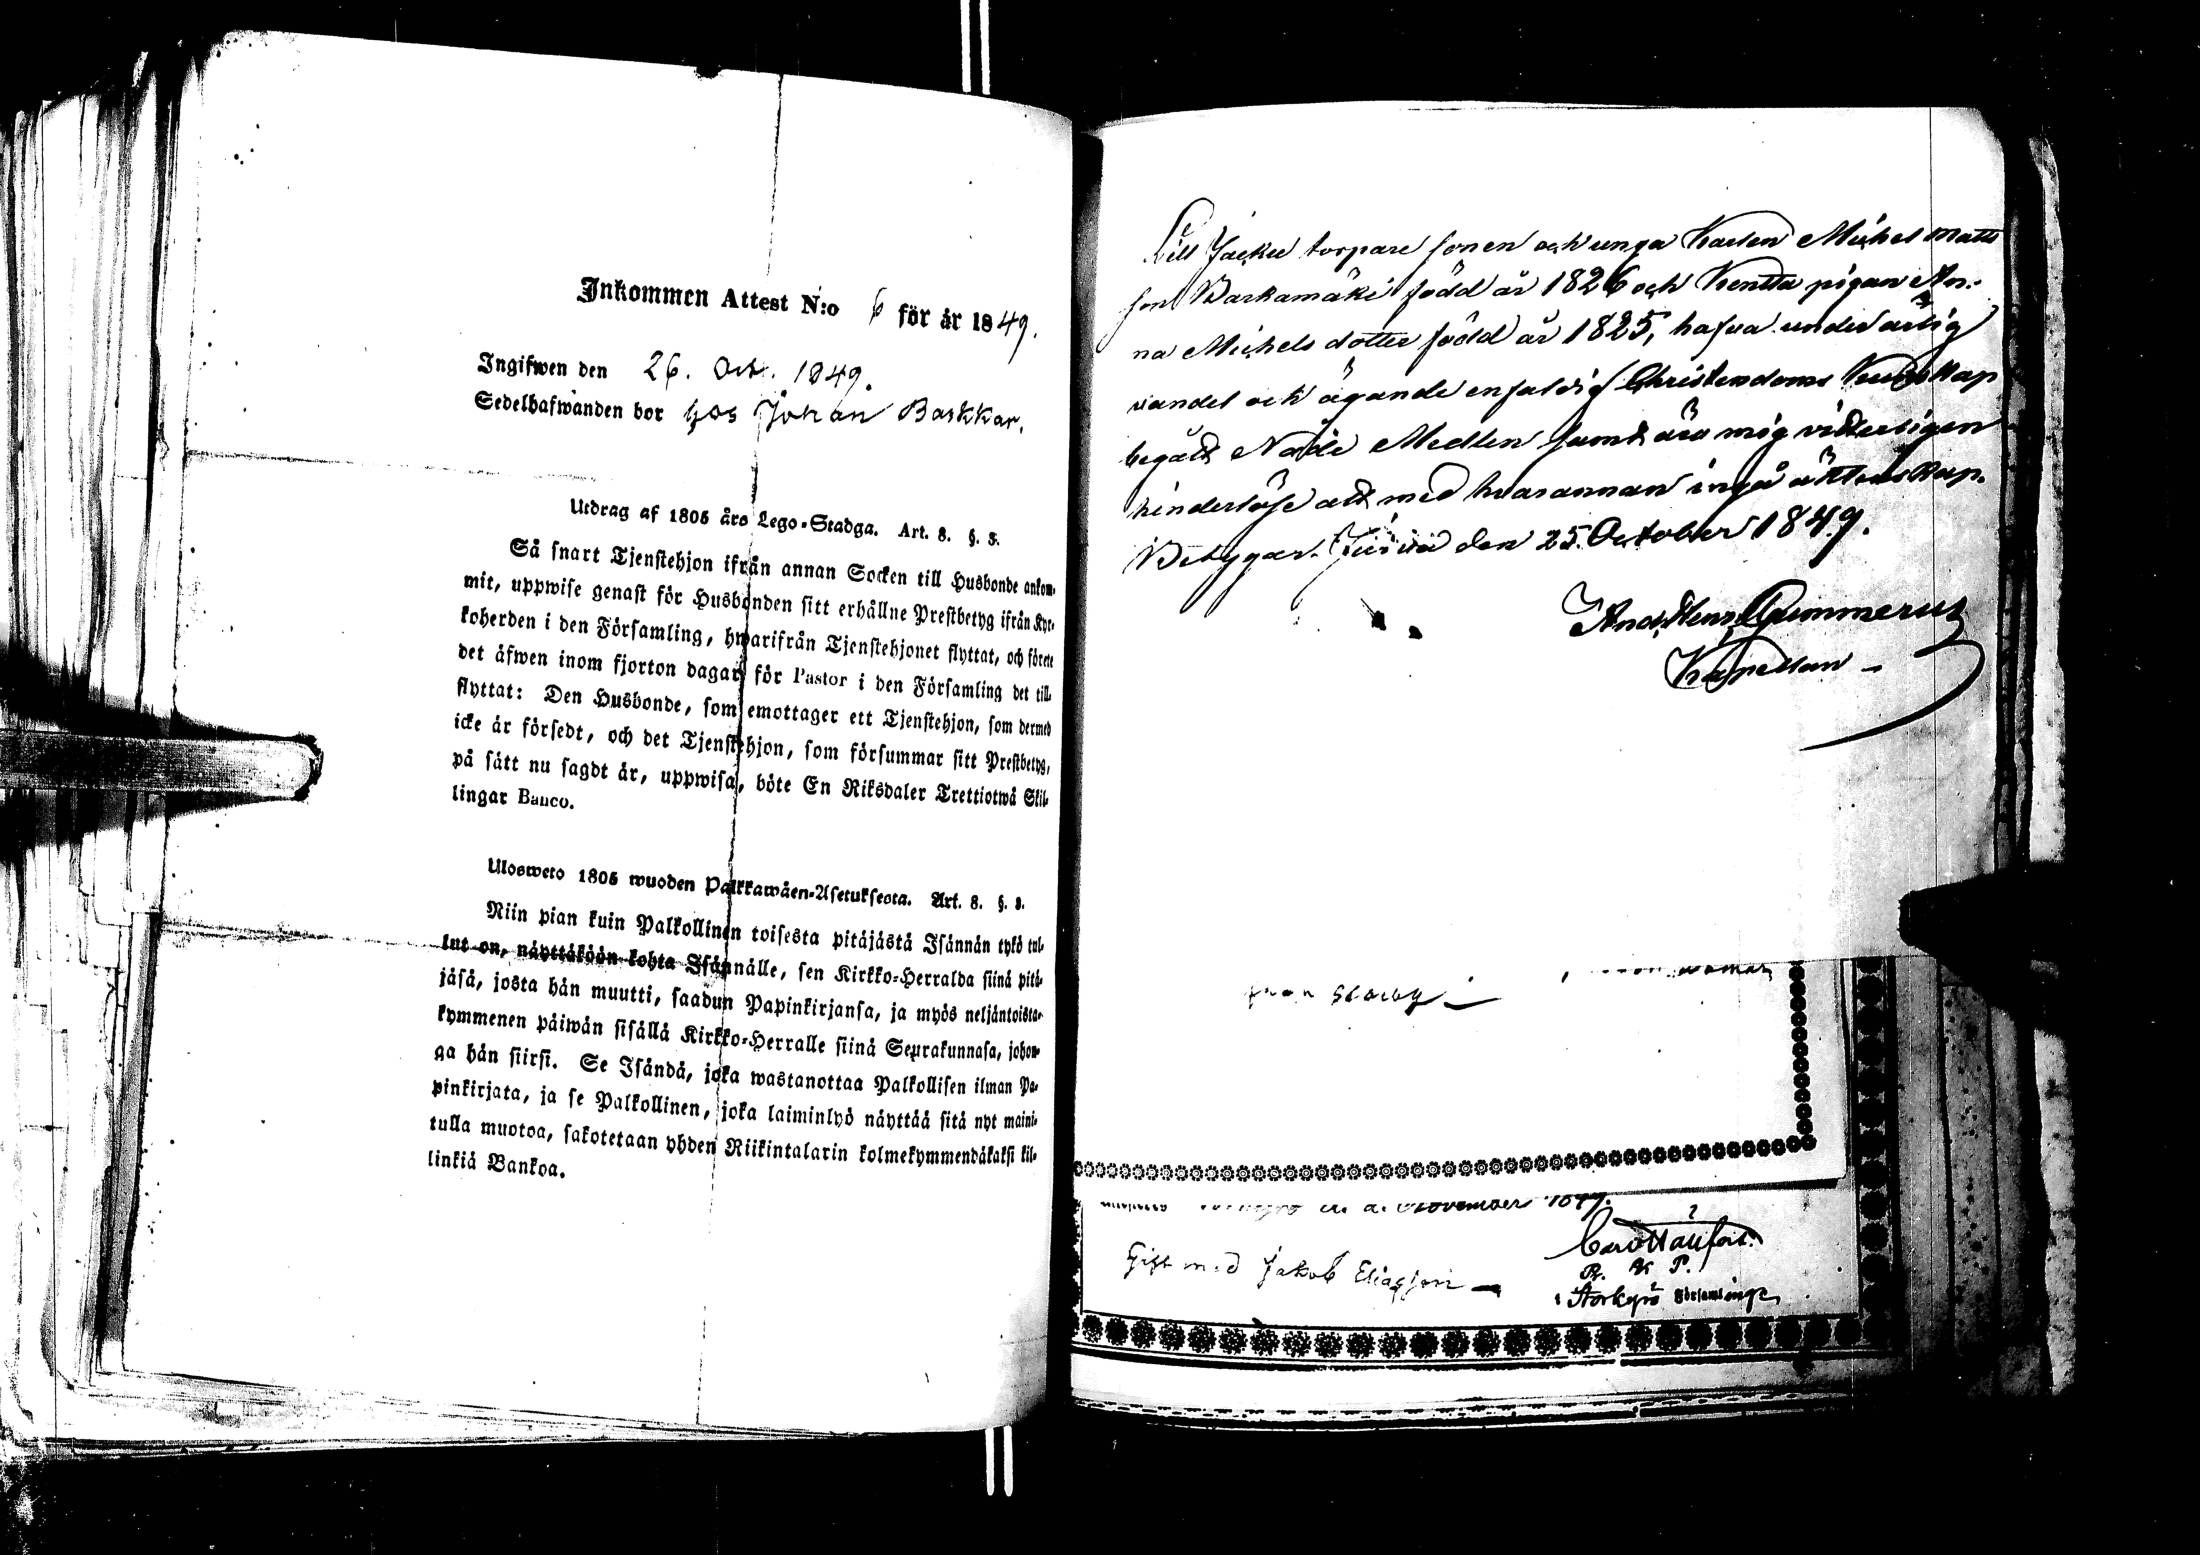 Inkommen Attest N:o 6 för år 1849.
Ingifwen den 26. Oct. 1849.
Sedelhafwanden bor hos Johan Baskkar.
Utdrag af 1805 års Lego-Stadga. Art. 8. §. 3.
Så snart Tjenstehjon ifrån annan Socken till Husbonde ankom-
mit, uppwise genast för Husbonden sitt erhållne Prestbetyg ifrån Kyr-
koherden i den Församling, hwarifrån Tjenstehjonet flyttat, och förete
det äfwen inom fjorton dagar för Pastor i den Församling det till-
flyttat: Den Husbonde, som emottager ett Tjenstehjon, som dermed
icke är försedt, och det Tjenstehjon, som försummar sitt Prestbetyg,
på sätt nu sagdt är, uppwisa, böte En Riksdaler Trettiotwå Skil-
lingar Banco.
Ulosweto 1805 wuoden Palkkawäen-Asetuksesta. Art. 8. §. 3.
Niin pian kuin Palkollinen toisesta pitäjästä Isännän tykö tul-
lut on, näyttäköön kohta Isännälle, sen Kirkko-Herralda siinä pitä-
jäsä, josta hän muutti, saadun Papinkirjansa, ja myös neljäntoista-
kymmenen päiwän sisällä Kirkko-Herralle siinä Seurakunnasa, johon-
ga hän siirsi. Se Isändä, joka wastanottaa Palkollisen ilman Pa-
pinkirjata, ja se Palkollinen, joka laiminlyö näyttää sitä nyt maini-
tulla muotoa, sakotetaan yhden Riikintalarin kolmekymmendäkaksi kil-
linkiä Bankoa.
torpare sonen och unga Karlen Michel Matts
son Barkamäki född år 1826 och Kentta pigan An-
na Michels dotter född år 1825, hafva under ärlig
vandel och ägande enfaldig Christendoms Kundskap
begått Nåde Medlen samt ära mig vitterligen
hinderlöse att med hvarannan ingå äktenskap.
Betygar. Jurva den 25. October 1849.
And. Hens. Gummerus
Kapellan
November 1849.
Gift med Jakob Eliasson
P.
Storkyro Församlings